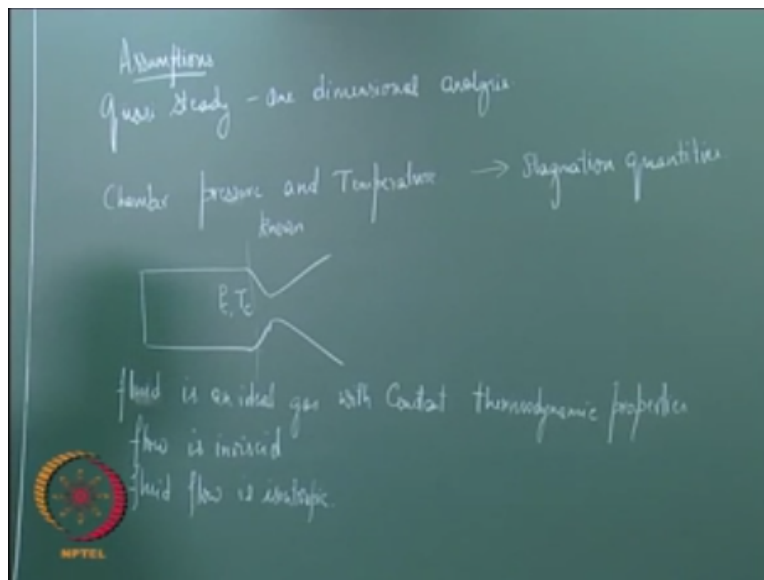 Assumptions
Quasi steady - one dimensional analysis
Chamber pressure and Temperature → Stagnation quantities
known
Pc, Tc
fluid is an ideal gas with Constant thermodynamic properties
flow is inviscid
fluid flow is isentropic.
NPTEL